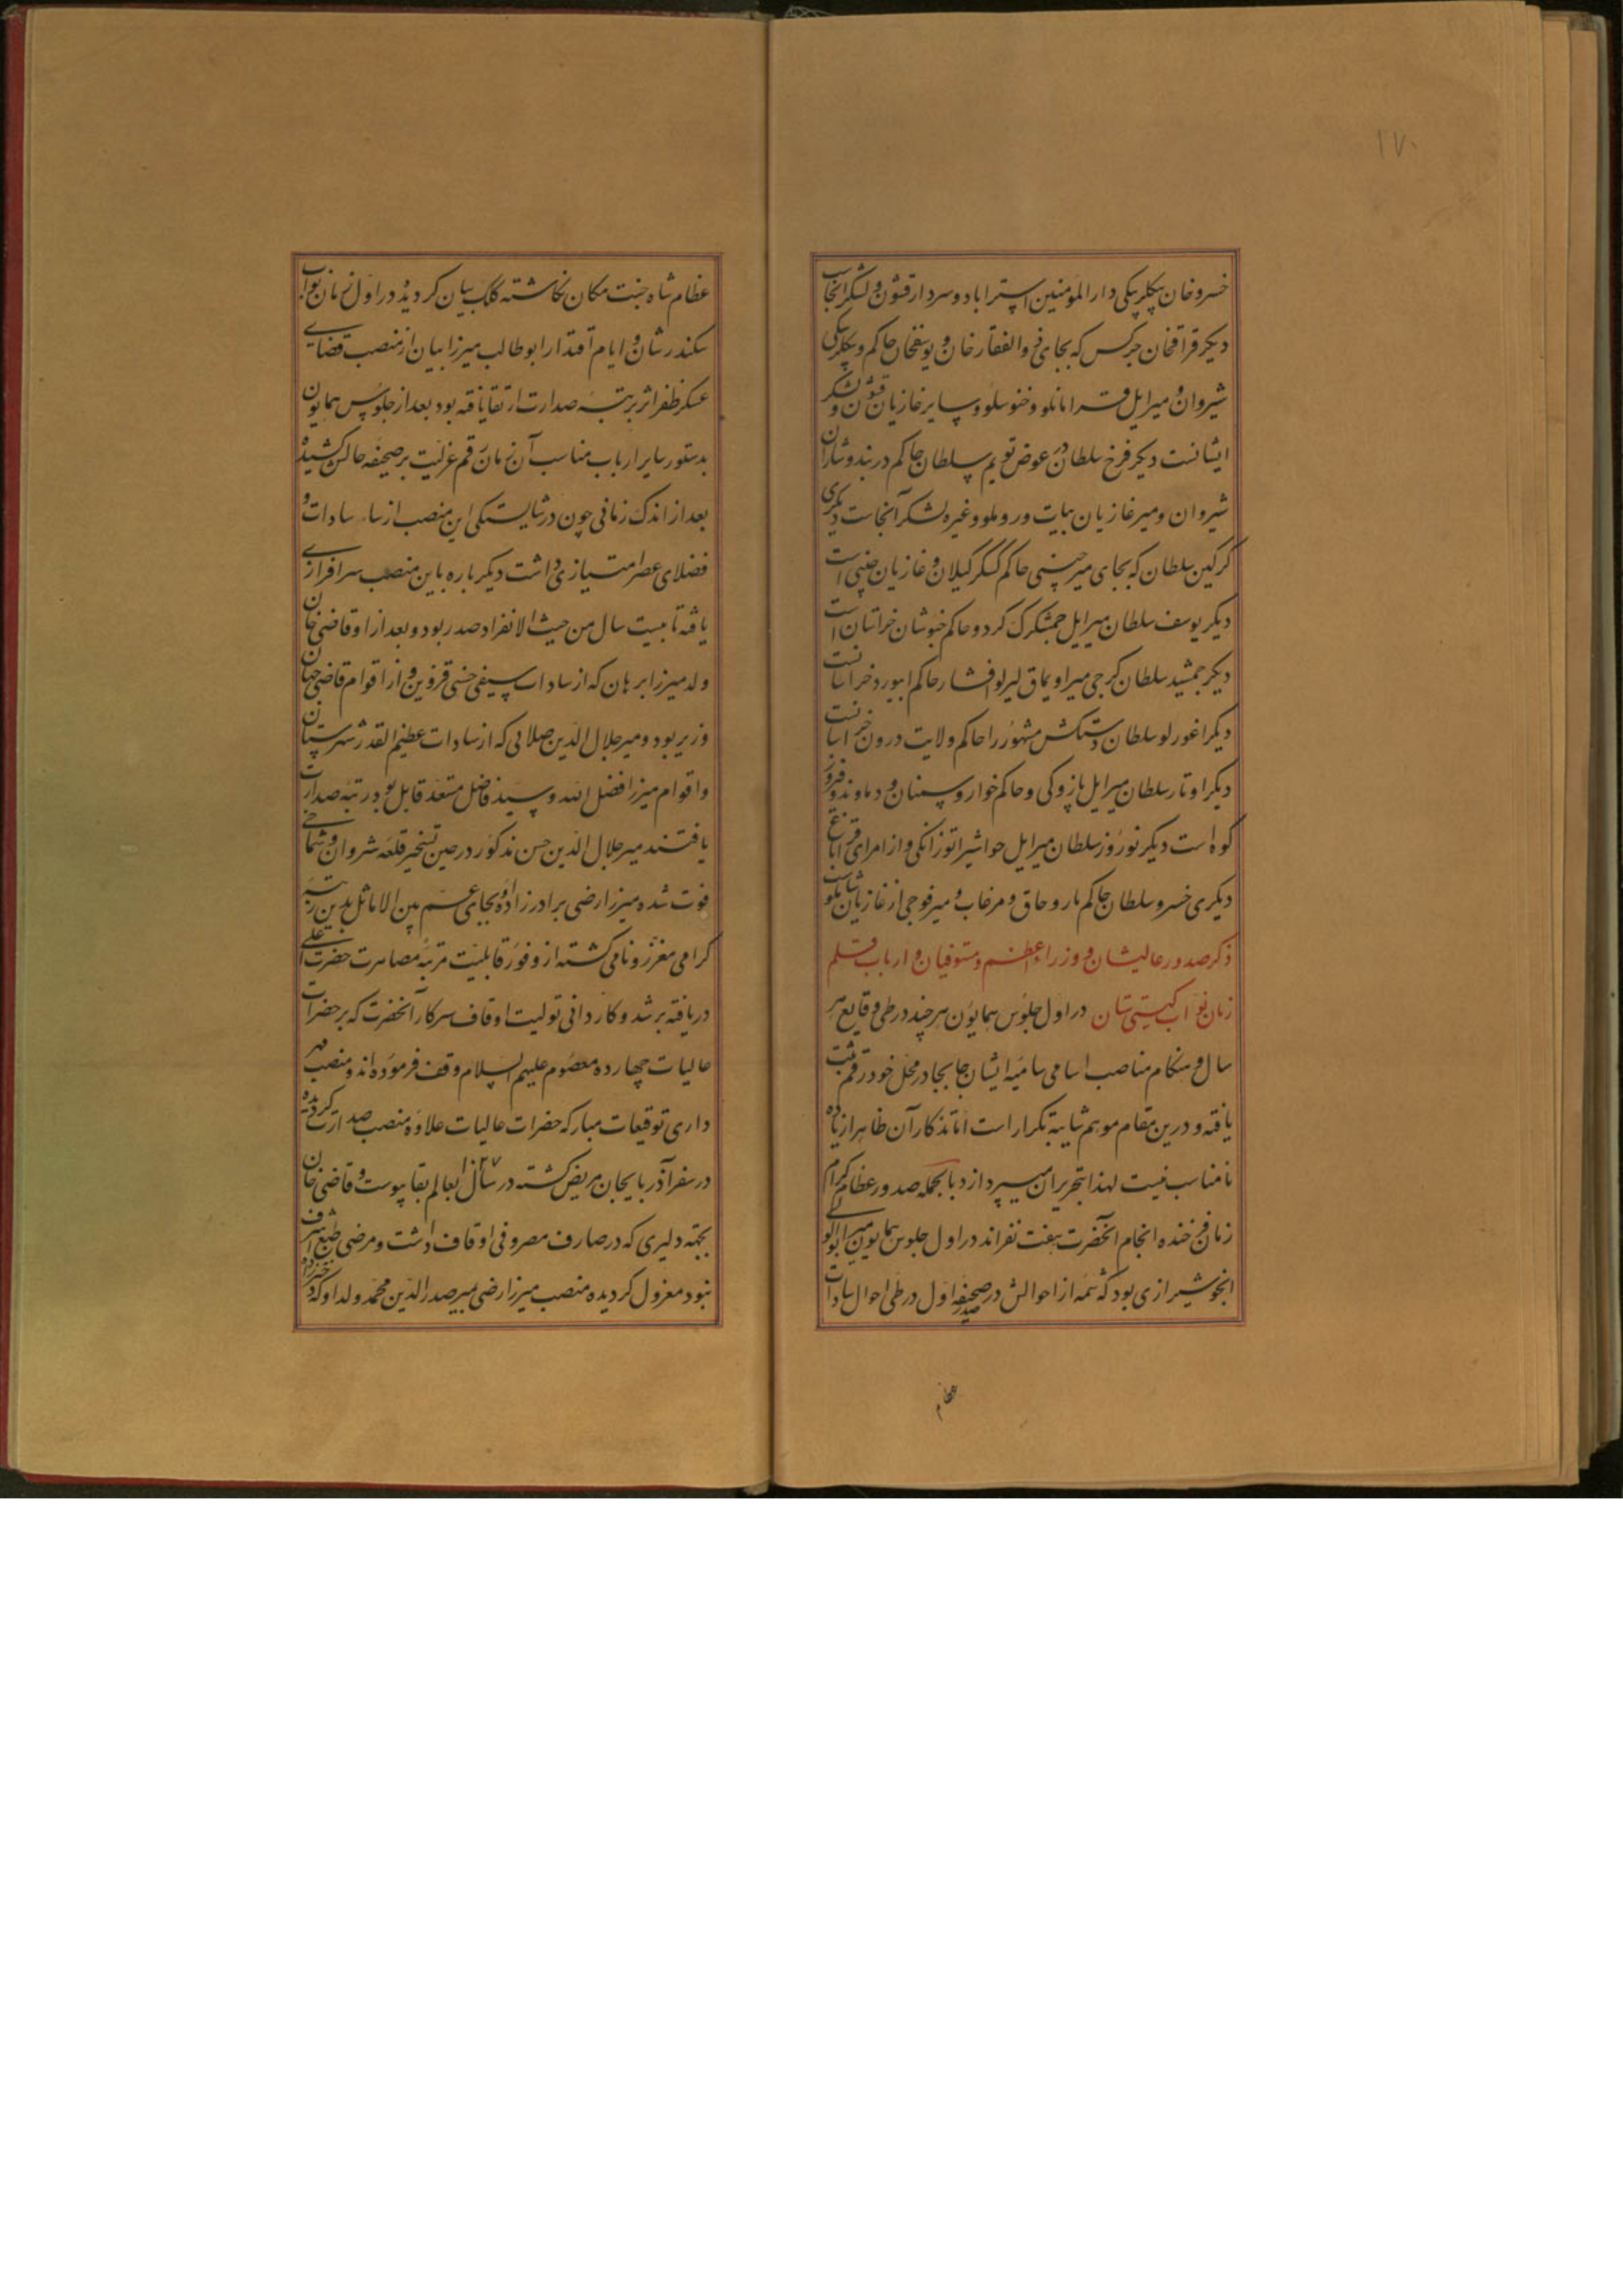 ۱۷۰
خسروخان بیکلربیکی دارالمؤمنین استراباد و سردار قشون و لشکر آنجاست
دیکر قراقخان چرکس که بجای ذوالفقارخان و یوسفخان حاکم و بیکلربیکی
شیروان و میر ایل قرامانلو و خنوسلو و سایر غازیان قشون و لشکر
ایشانست دیکر فرخ سلطان در عوض سلطان حاکم دربند و شابران
شیروان و میر غازیان بیات و روملو و غیره لشکر آنجاست دیکری
کرکین سلطان که بجای میر حاکم کسکر کیلان و غازیان است
دیکر یوسف سلطان میر ایل چمشکزک کرد و حاکم خبوشان خراسان است
دیکر جمشید سلطان کرجی میر اویماق افشار حاکم ابیورد خراسانست
دیکر اغورلو سلطان مشهور را حاکم ولایت درون خراسانست
دیکر اوتار سلطان میر ایل بازوکی و حاکم خوار و سمنان و دماوند و فیروز
کوه است دیکر نوروز سلطان میر ایل و از امرای قراباغ
دیکری خسرو سلطان حاکم ماروحاق و مرغاب و میر فوجی از غازیان شاملوست
ذکر صدور عالیشان و وزراء اعظم و مستوفیان و ارباب قلم
زمان نواب کیتی ستان در اول جلوس همایون هرچند در طی وقایع هر
سال و هنکام مناصب اسامی سامیه ایشان جا بجا در محل خود رقم ثبت
یافته و درین مقام موهم شایبه تکرار است اما تذکار آن ظاهرا زیاده
نامناسب نیست لهذا بتحریر آن میپردازد بالجمله صدور عظام کرام
زمان فرخنده انجام آنحضرت هفت نفراند در اول جلوس همایون میر ابوالولی
انجو شیرازی بود که شمه از احوالش در صحیفه اول در طی احوال سادات
عظام
عظام شاه جنت مکان نکاشته کلک بیان کردیده در اول زمان نواب
سکندرشان و ایام اقتدار ابوطالب میرزا بیان از منصب قضای
عسکر ظفر اثر برتبه صدارت ارتقا یافته بود بعد از جلوس همایون
بدستور سایر ارباب مناسب آن زمان رقم عزلیت بر صحیفه حالش کشیده
بعد از اندک زمانی چون در شایستکی این منصب از سایر سادات و
فضلای عصر امتیازی داشت دیکرباره باین منصب سرافرازی
یافته تا بیست سال من حیث الانفراد صدر بود و بعد از او قاضی خان
ولد میرزا برهان که از سادات سیفی حسنی قزوین و از اقوام قاضی جهان
وزیر بود و میر جلال الدین صلائی که از سادات عظیم القدر شهرستان
و اقوام میرزا فضل الله و سید فاضل مستعد قابل بود رتبه صدارت
یافتند میر جلال الدین حسن مذکور در حین تسخیر قلعه شروان و شماخی
فوت شده میرزا رضی برادرزاده او بجای عم بین الاماثل بدین رتبه
کرامی معزز و نامی کشته از وفور قابلیت مرتبه مصاهرت حضرت اعلی
دریافته برشد و کاردانی تولیت اوقاف سرکار آنحضرت که بر حضرات
عالیات چهارده معصوم علیهم السلام وقف فرموده اند و منصب مهر
داری توقیعات مبارکه حضرات عالیات علاوه منصب صدارت کردیده
در سفر آذربایجان مریض کشته در سال ۱۰۲۷ بعالم بقا پیوست و قاضی خان
بجهته دلیری که در صارف مصروفی اوقاف داشت و مرضی طبع اشرف
نبود معزول کردیده منصب میرزا رضی میر صدرالدین محمد ولد او که دخترزاده